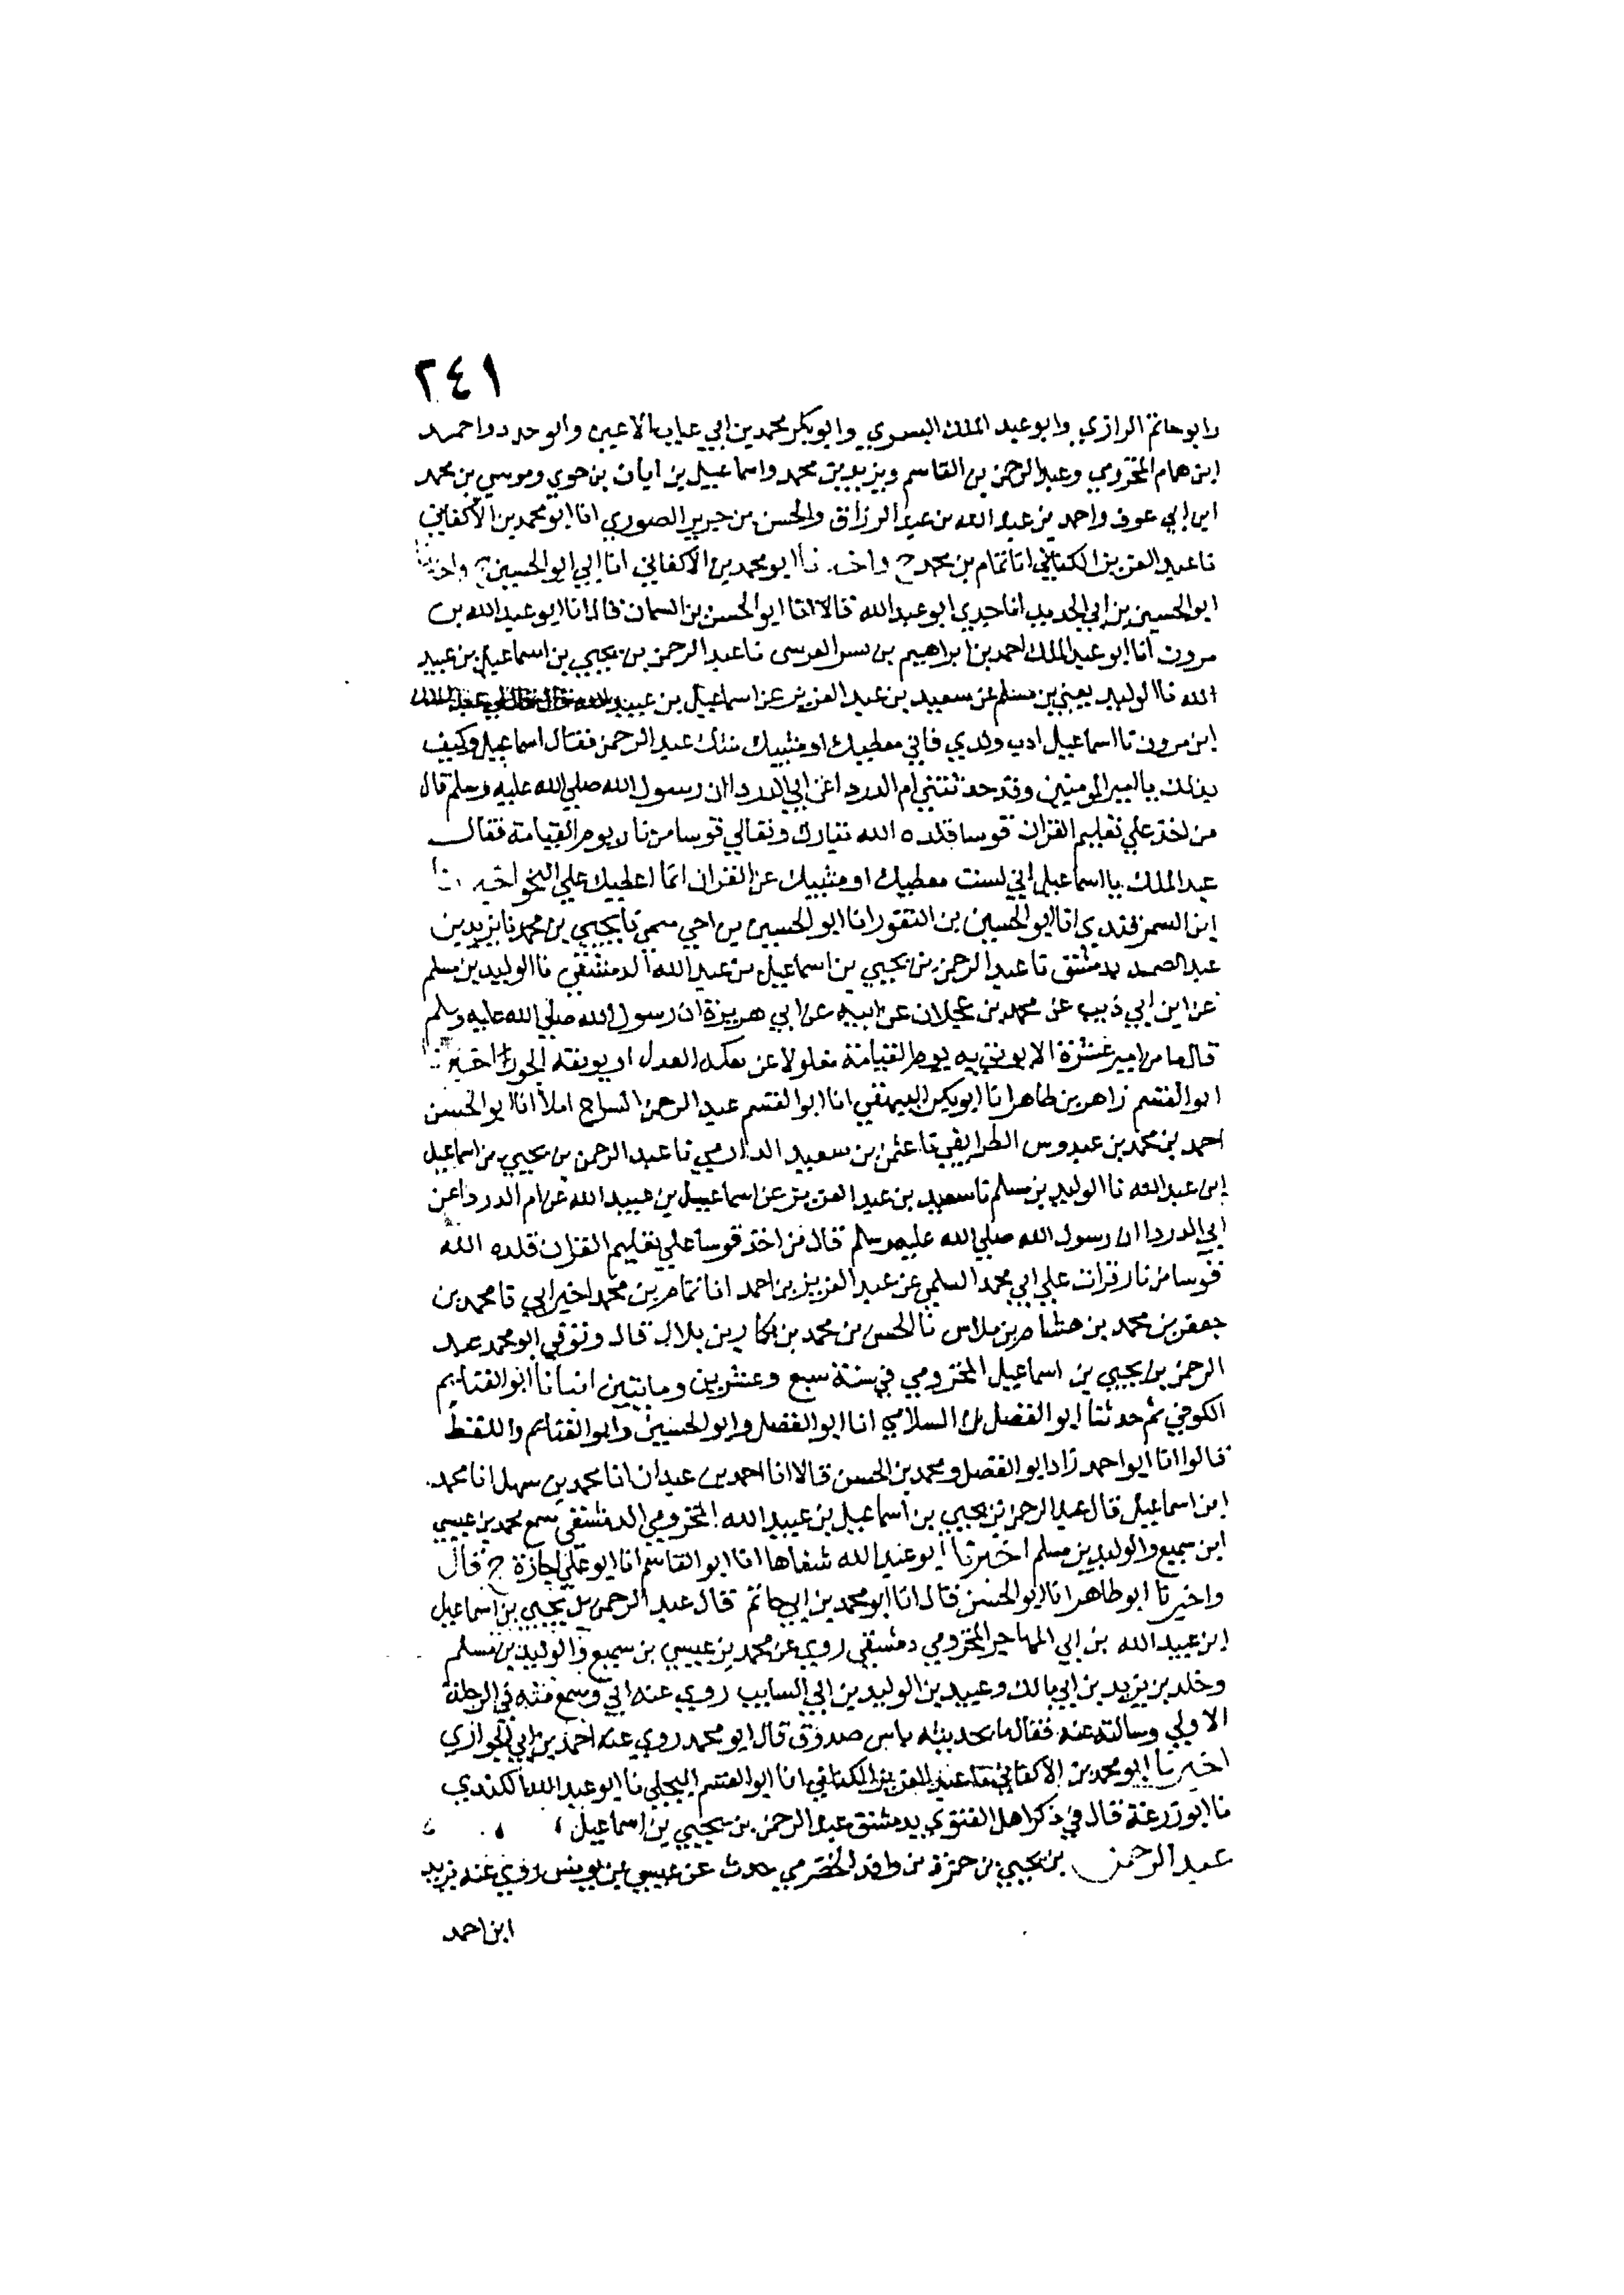 ٢٤١
وابو حاتم الرازي وابو عبد الملك البسري وابو بكر محمد بن ابي عتاب الاعين واحمد
ابن همام المخزومي وعبد الرحمن بن القاسم ويزيد بن محمد واسماعيل بن ابان بن حوي وموسي بن محمد
ابن ابي عوف واحمد بن عبد الله بن عبد الرزاق والحسن بن جرير الصوري انا ابو محمد بن الاكفاني
نا عبد العزيز الكتاني انا تمام بن محمد ح نا ابو محمد بن الاكفاني انا ابي ابو الحسين ح
ابو الحسين بن ابي الحديد انا جدي ابو عبد الله قالا انا ابو الحسن بن السمان قال انا ابو عبد الله بن
مرون انا ابو عبد الملك احمد بن ابراهيم بن بسر القرسي نا عبد الرحمن بن يحيي بن اسماعيل بن عبيد
الله نا الوليد يعني بن مسلم عن سعيد بن عبد العزيز عن اسماعيل بن عبيد الله قال قال لي عبد الملك
ابن مرون يا اسماعيل ادب ولدي فاني معطيك او مثيبك عبد الرحمن فقال اسماعيل وكيف
بذلك يا امير المومنين وقد حدثتني ام الدردا عن ابي الدردا ان رسول الله صلي الله عليه وسلم قال
من اخذ علي تعليم القران قوسا قلده الله تبارك وتعالي قوسا من نار يوم القيامة فقال
عبد الملك يا اسماعيل اني لست معطيك او مثيبك عن القران انما اعطيك علي النحو اخبرنا
ابن السمرقندي انا ابو الحسين بن النقور انا ابو الحسين بن اخي ميمي نا يحيي بن محمد نا يزيد بن
عبد الصمد بدمشق نا عبد الرحمن بن يحيي بن اسماعيل بن عبد الله الدمشقي نا الوليد بن مسلم
عن ابن ابي ذيب عن محمد بن عجلان عن ابيه عن ابي هريرة ان رسول الله صلي الله عليه وسلم
قال ما من امير عشرة الا يوتي به يوم القيامة مغلولا يفكه العدل او يوبقه الجور اخبرنا
ابو القسم زاهر بن طاهر انا ابو بكر البيهقي انا ابو القسم عبد الرحمن السراج املا انا ابو الحسن
احمد بن محمد بن عبدوس الطرايفي نا عثمن بن سعيد الدارمي نا عبد الرحمن بن يحيي بن اسماعيل
ابن عبد الله نا الوليد بن مسلم نا سعيد بن عبد العزيز عن اسماعيل بن عبيد الله عن ام الدردا عن
ابي الدردا ان رسول الله صلي الله عليه وسلم قال من اخذ قوسا علي تعليم القران قلده الله
قوسا من نار قرات علي ابي محمد السلمي عن عبد العزيز بن احمد انا تمام بن محمد اخبرني ابي نا محمد بن
جعفر بن محمد بن هشام بن ملاس نا الحسن بن محمد بن بكار بن بلال قال وتوفي ابو محمد عبد
الرحمن بن يحيي بن اسماعيل المخزومي في سنة سبع وعشرين وماتين انبانا ابو الغنايم
الكوفي ثم حدثنا ابو الفضل السلامي انا ابو الفضل وابو الحسين وابو الغنايم واللفظ
قالوا انا ابو احمد زاد ابو الفضل ومحمد بن الحسن قالا انا احمد بن عبدان انا محمد بن سهل انا محمد
ابن اسماعيل قال عبد الرحمن بن يحيي بن اسماعيل بن عبيد الله المخزومي الدمشقي سمع محمد بن عيسي
ابن سميع والوليد بن مسلم اخبرنا ابو عبد الله شفاها انا ابو القاسم انا ابو علي اجازة ح قال
واخبرنا ابو طاهر انا ابو الحسن قال انا ابو محمد بن ابي حاتم قال عبد الرحمن بن يحيي بن اسماعيل
ابن عبيد الله بن ابي المهاجر المخزومي دمشقي روي عن محمد بن عيسي بن سميع والوليد بن مسلم
وخلد بن يزيد بن ابي مالك وعبيد بن الوليد بن ابي السايب روي عنه ابي وسمع منه في الرحلة
الاولي وسالته عنه فقال ما بحديثه باس صدوق قال ابو محمد روي عنه احمد بن ابي الحواري
اخبرنا ابو محمد بن الاكفاني نا عبد العزيز الكتاني انا ابو القسم البجلي نا ابو عبد الله الكندي
نا ابو زرعة قال في ذكر اهل الفتوي بدمشق عبد الرحمن بن يحيي بن اسماعيل
عبد الرحمن بن يحيي بن حمزة بن واقد الحضرمي حدث عن عيسي بن يونس روي عنه يزيد
ابن احمد